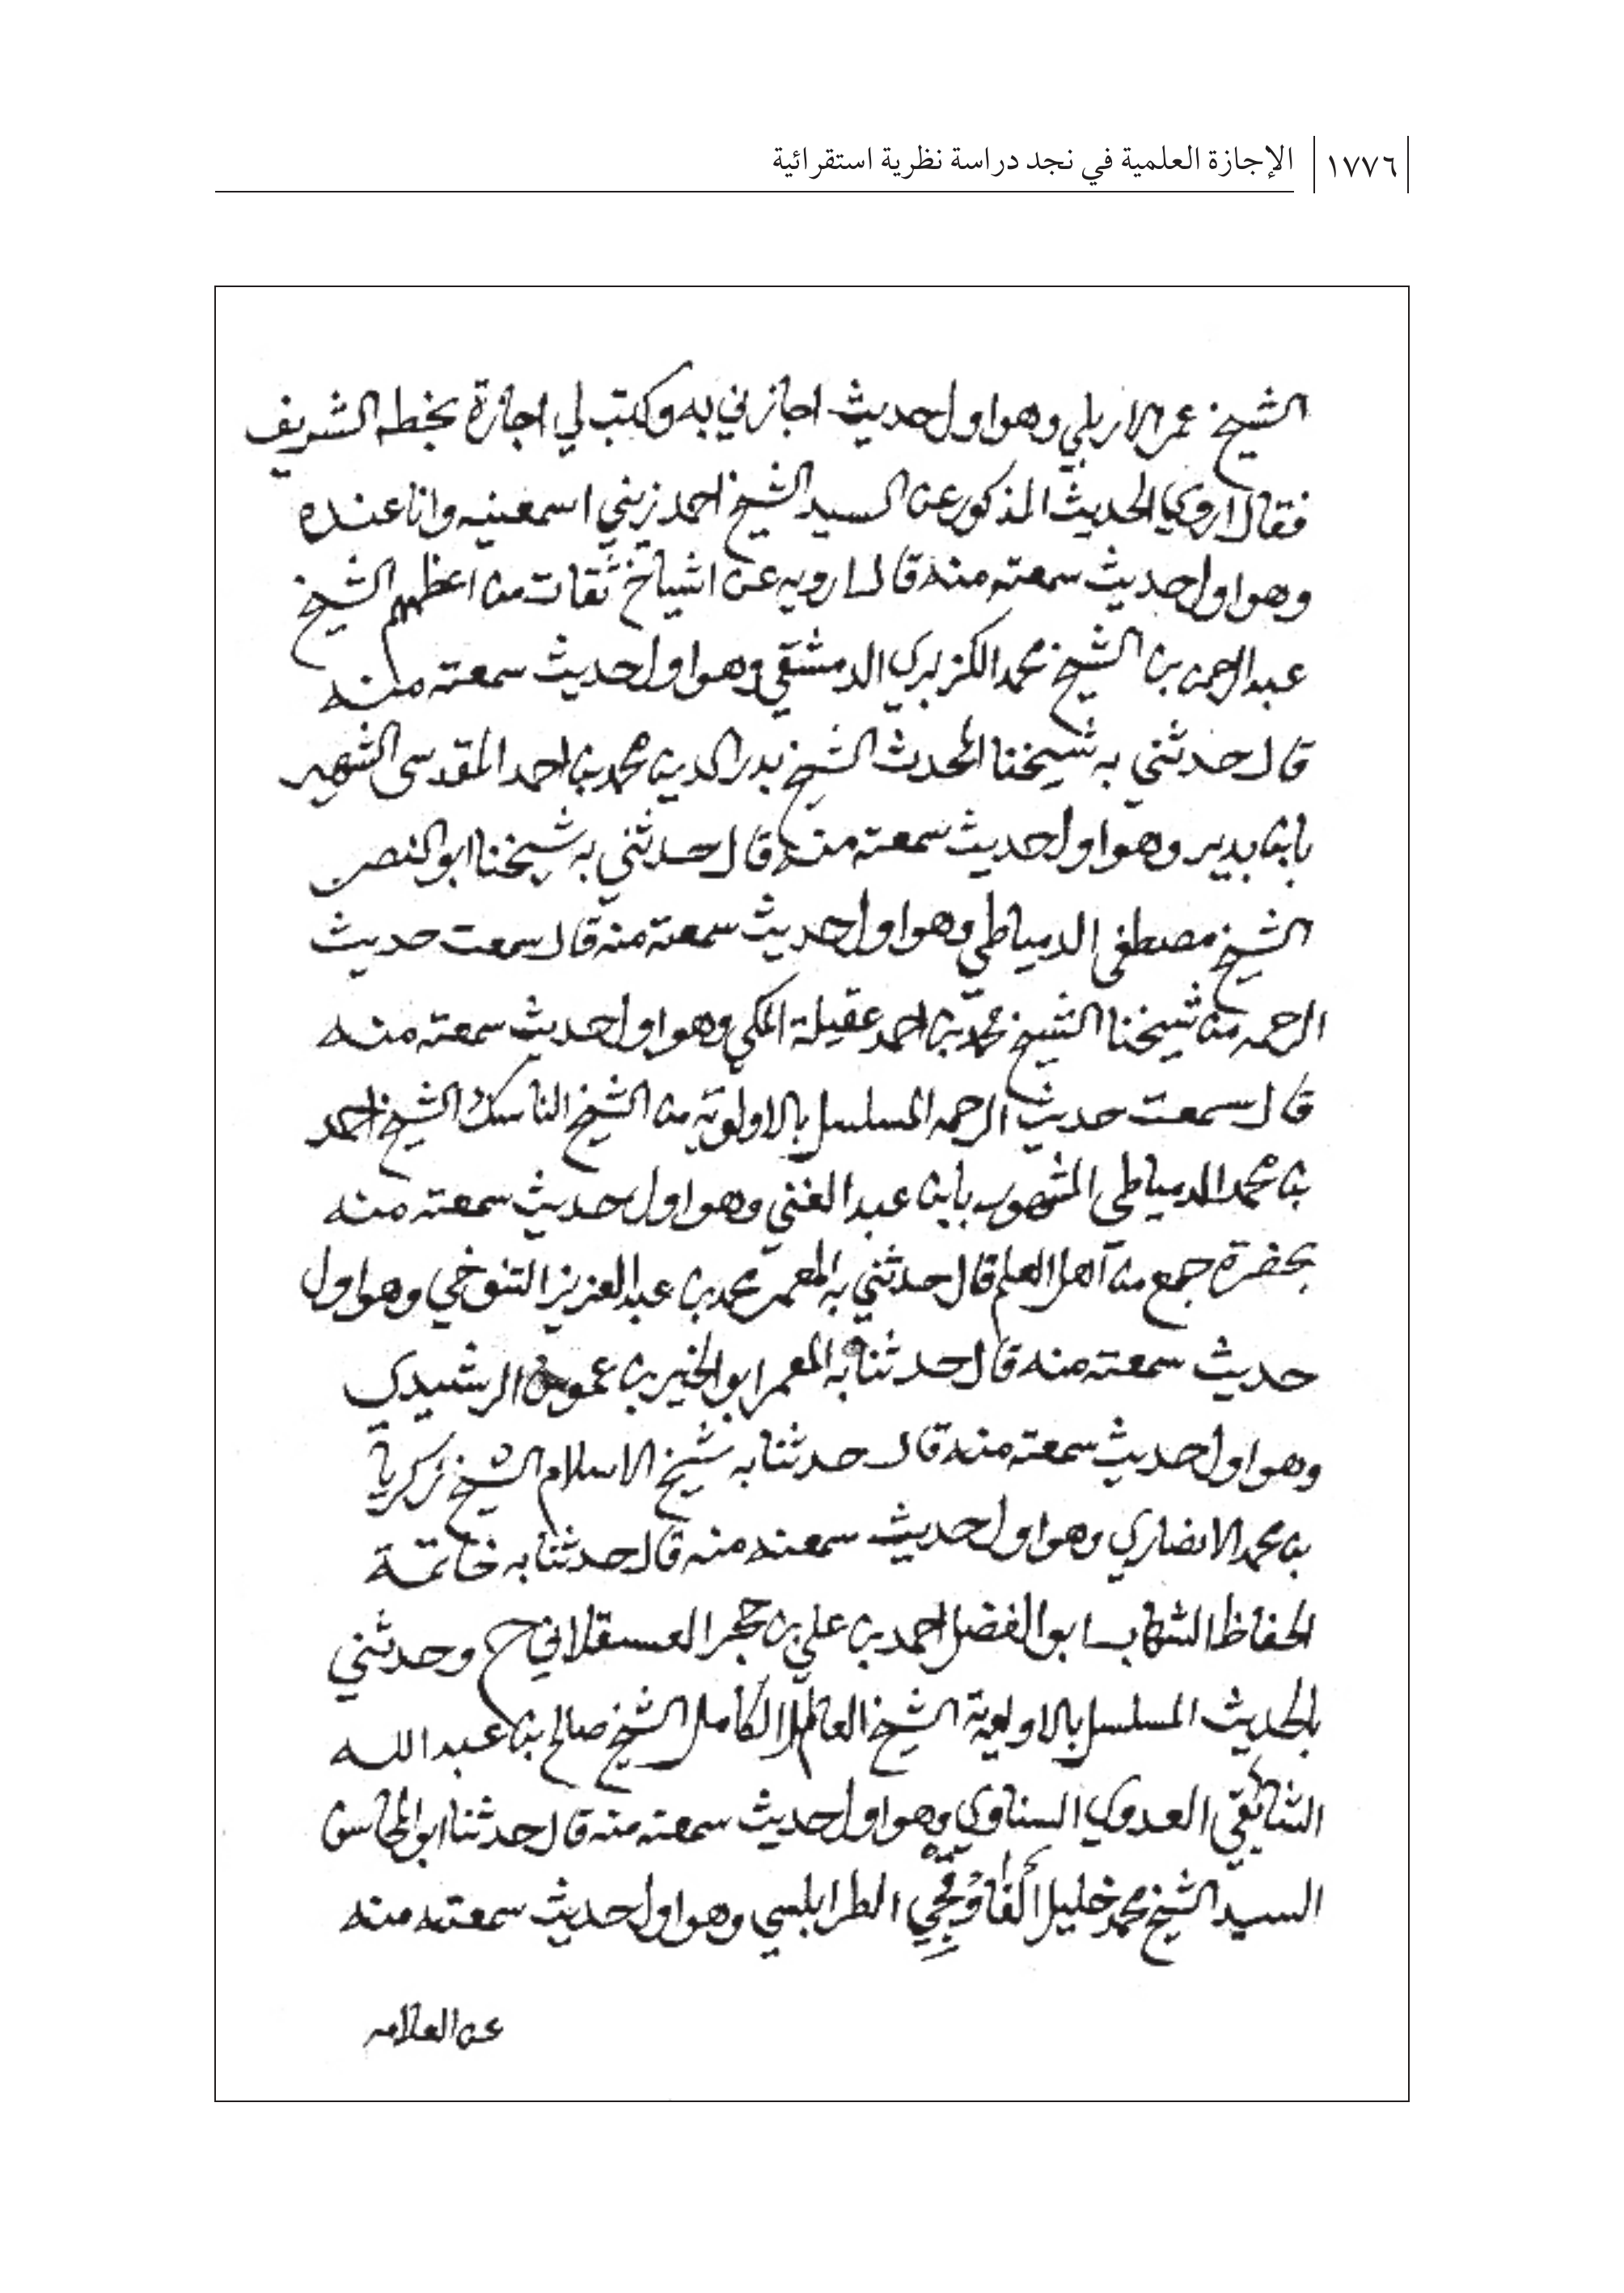 ١٧٧٦ الإجازة العلمية في نجد دراسة نظرية استقرائية
الشيخ عمر الاربلي وهو اول حديث اجازني به وكتب لي اجازة بخطه الشريف
فقال اروي الحديث المذكور عن السيد الشيخ احمد زيني اسمعنيه وانا عنده
وهو اول حديث سمعته منه قال ارويه عن اشياخ ثقات من اعظمهم الشيخ
عبد الرحمن بن الشيخ محمد الكزبري الدمشقي وهو اول حديث سمعته منه
قال حدثني به شيخنا المحدث الشيخ بدر الدين محمد بن احمد المقدسي الشهير
بابن بدير وهو اول حديث سمعته منه قال حدثني به شيخنا ابو النصر
الشيخ مصطفى الدمياطي وهو اول حديث سمعته منه قال سمعت حديث
الرحمه من شيخنا الشيخ محمد بن احمد عقيلة المكي وهو اول حديث سمعته منه
قال سمعت حديث الرحمه المسلسل بالاولوية من الشيخ الناسك الشيخ احمد
بن محمد الدمياطي المشهور بابن عبد الغني وهو اول حديث سمعته منه
بحضرة جمع من اهل العلم قال حدثني به المعمر محمد بن عبد العزيز التنوخي وهو اول
حديث سمعته منه قال حدثنا به المعمر ابو الخير بن عموس الرشيدي
وهو اول حديث سمعته منه قال حدثنا به شيخ الاسلام الشيخ زكريا
بن محمد الانصاري وهو اول حديث سمعته منه قال حدثنا به خاتمة
الحفاظ الشهاب ابو الفضل احمد بن علي بن حجر العسقلاني ح وحدثني
بالحديث المسلسل بالاولوية الشيخ العالم الكامل الشيخ صالح بن عبد الله
العدوي السناوي وهو اول حديث سمعته منه قال حدثنا ابو المحاسن
السيد الشيخ محمد خليل القاوقجي الطرابلسي وهو اول حديث سمعته منه
عن العلامه